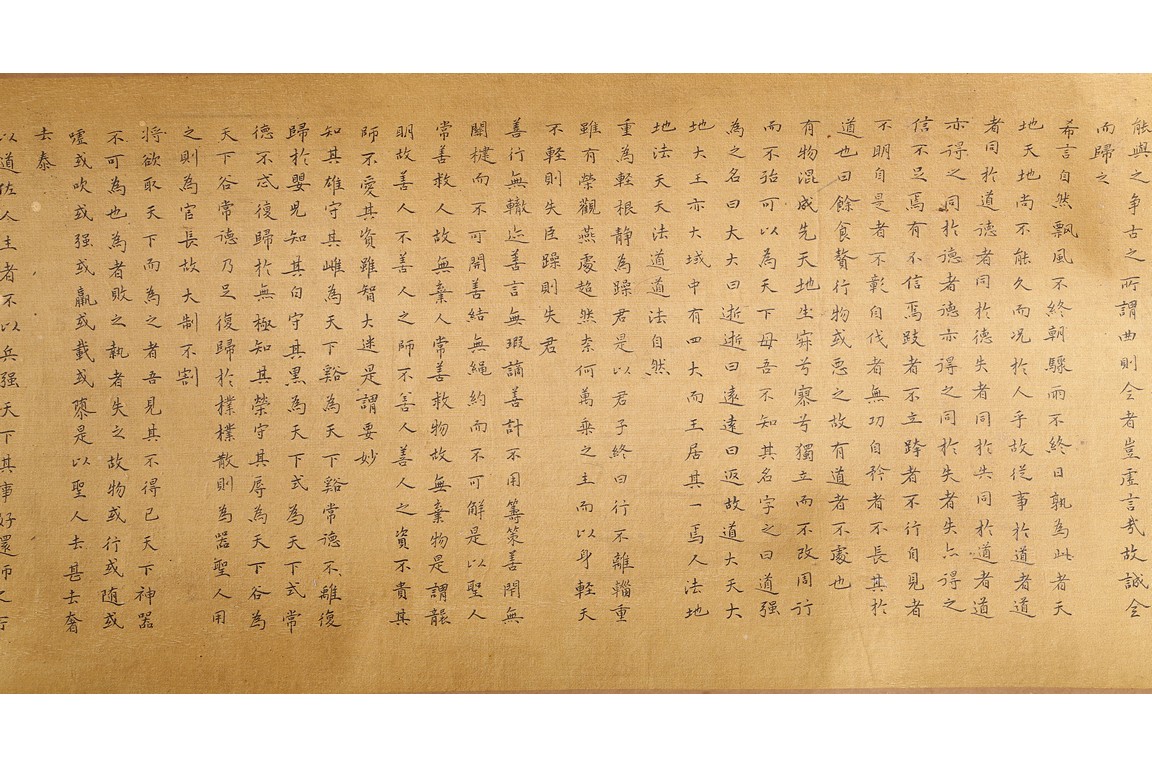 能與之争古之所謂曲則全者豈虛言㢤故誠全
而歸之
希言自然飄風不終朝驟雨不終日孰為此者天
地天地尚不能久而况於人乎故從事於道者道
者同於道德者同於德失者同於失同於道者道
亦得之同於德者德亦得之同於失者失亦得之
信不足焉有不信焉跂者不立跨者不行自見者
不明自是者不彰自伐者無功自矜者不長其於
道也曰餘食贅行物或惡之故有道者不處也
有物混成先天地生寂兮寥兮獨立而不改周行
而不殆可以為天下母吾不知其名字之曰道强
為之名曰大大曰逝逝曰遠遠曰返故道大天大
地大王亦大域中有四大而王居其一焉人法地
地法天天法道道法自然
重為輕根静為躁君是以君子終日行不離輜重
雖有榮觀燕處超然柰何萬乘之主而以身輕天
不輕則失臣躁則失君
善行無轍迹善言無瑕謫善計不用籌策善閉無
關楗而不可開善結無繩約而不可解是以聖人
常善救人故無棄人常善救物故無棄物是謂襲
明故善人不善人之師不善人善人之資不貴其
師不愛其資雖智大迷是謂要妙
知其雄守其雌為天下谿為天下谿常德不離復
歸於嬰兒知其白守其黑為天下式為天下式常
德不忒復歸於無極知其榮守其辱為天下谷為
天下谷常德乃足復歸於樸樸散則為器聖人用
之則為官長故大制不割
将欲取天下而為之者吾見其不得已天下神器
不可為也為者敗之執者失之故物或行或随或
嘘或吹或强或羸或載或隳是以聖人去甚去奢
去泰
以道佐人主者不以兵强天下其事好還師之